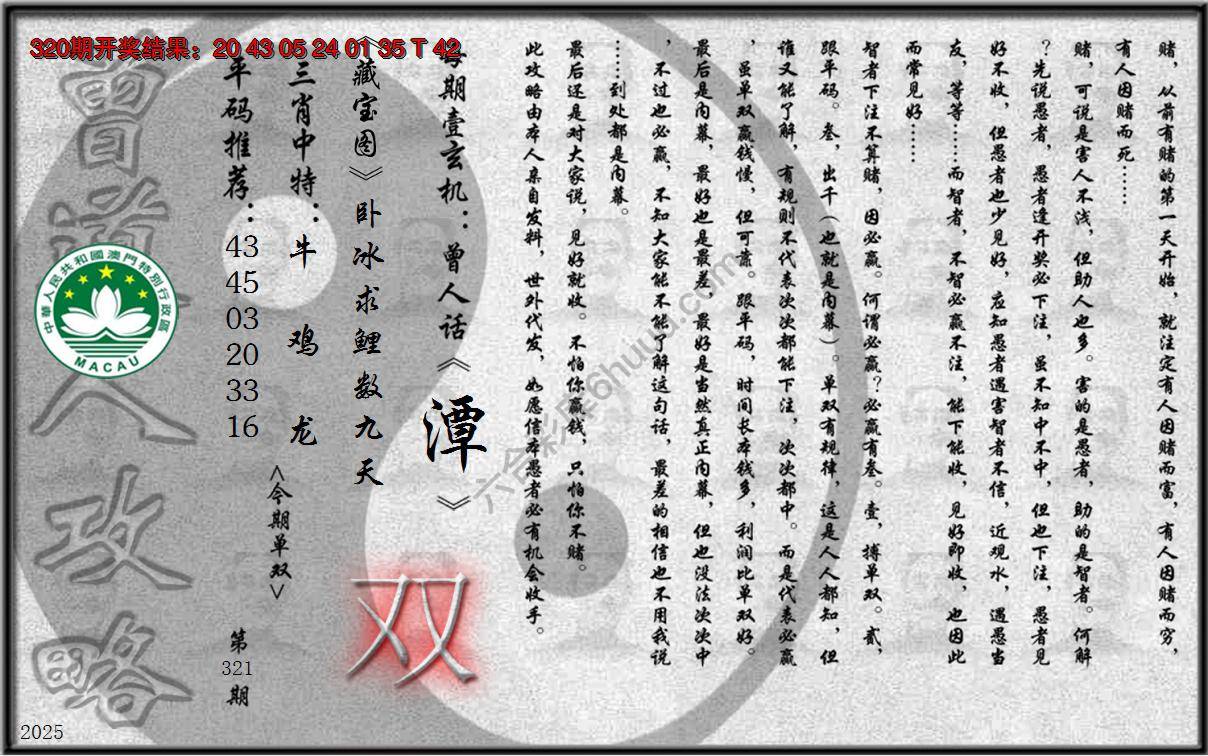 320期开奖结果：20 43 05 24 01 35 T 42
赌，从前有赌的第一天开始，就注定有人因赌而富，有人因赌而穷，
有人因赌而死……
赌，可说是害人不浅，但助人也多。害的是愚者，助的是智者。何解
？先说愚者，愚者逢开奖必下注，虽不知中不中，但也下注，愚者见
好不收，但愚者也少见好，应知愚者遇害智者不信，近观水，遇愚当
友，等等……而智者，不智必赢不注，能下能收，见好即收，也因此
而常见好……
智者下注不算赌，因必赢。何谓必赢？必赢有叁。壹，搏单双。贰，
跟平码。叁，出千（也就是内幕）。单双有规律，这是人人都知，但
谁又能了解，有规则不代表次次都能下注，次次都中。而是代表必赢
，虽单双赢钱慢，但可靠。跟平码，时间长本钱多，利润比单双好。
最后是内幕，最好也是最差，最好是当然真正内幕，但也没法次次中
，不过也必赢，不知大家能不能了解这句话，最差的相信也不用我说
……到处都是内幕。
最后还是对大家说，见好就收。不怕你赢钱，只怕你不赌。
此攻略由本人亲自发料，世外代发，如愿信本愚者必有机会收手。
每期壹玄机：曾人话《潭》
《藏宝图》卧冰求鲤数九天
三肖中特：牛 鸡 龙
平码推荐：
43
45
03
20
33
16
<今期单双>
双
第
321
期
曾道人攻略
中華人民共和國澳門特別行政區
MACAU
六合彩库6huuu.com
2025